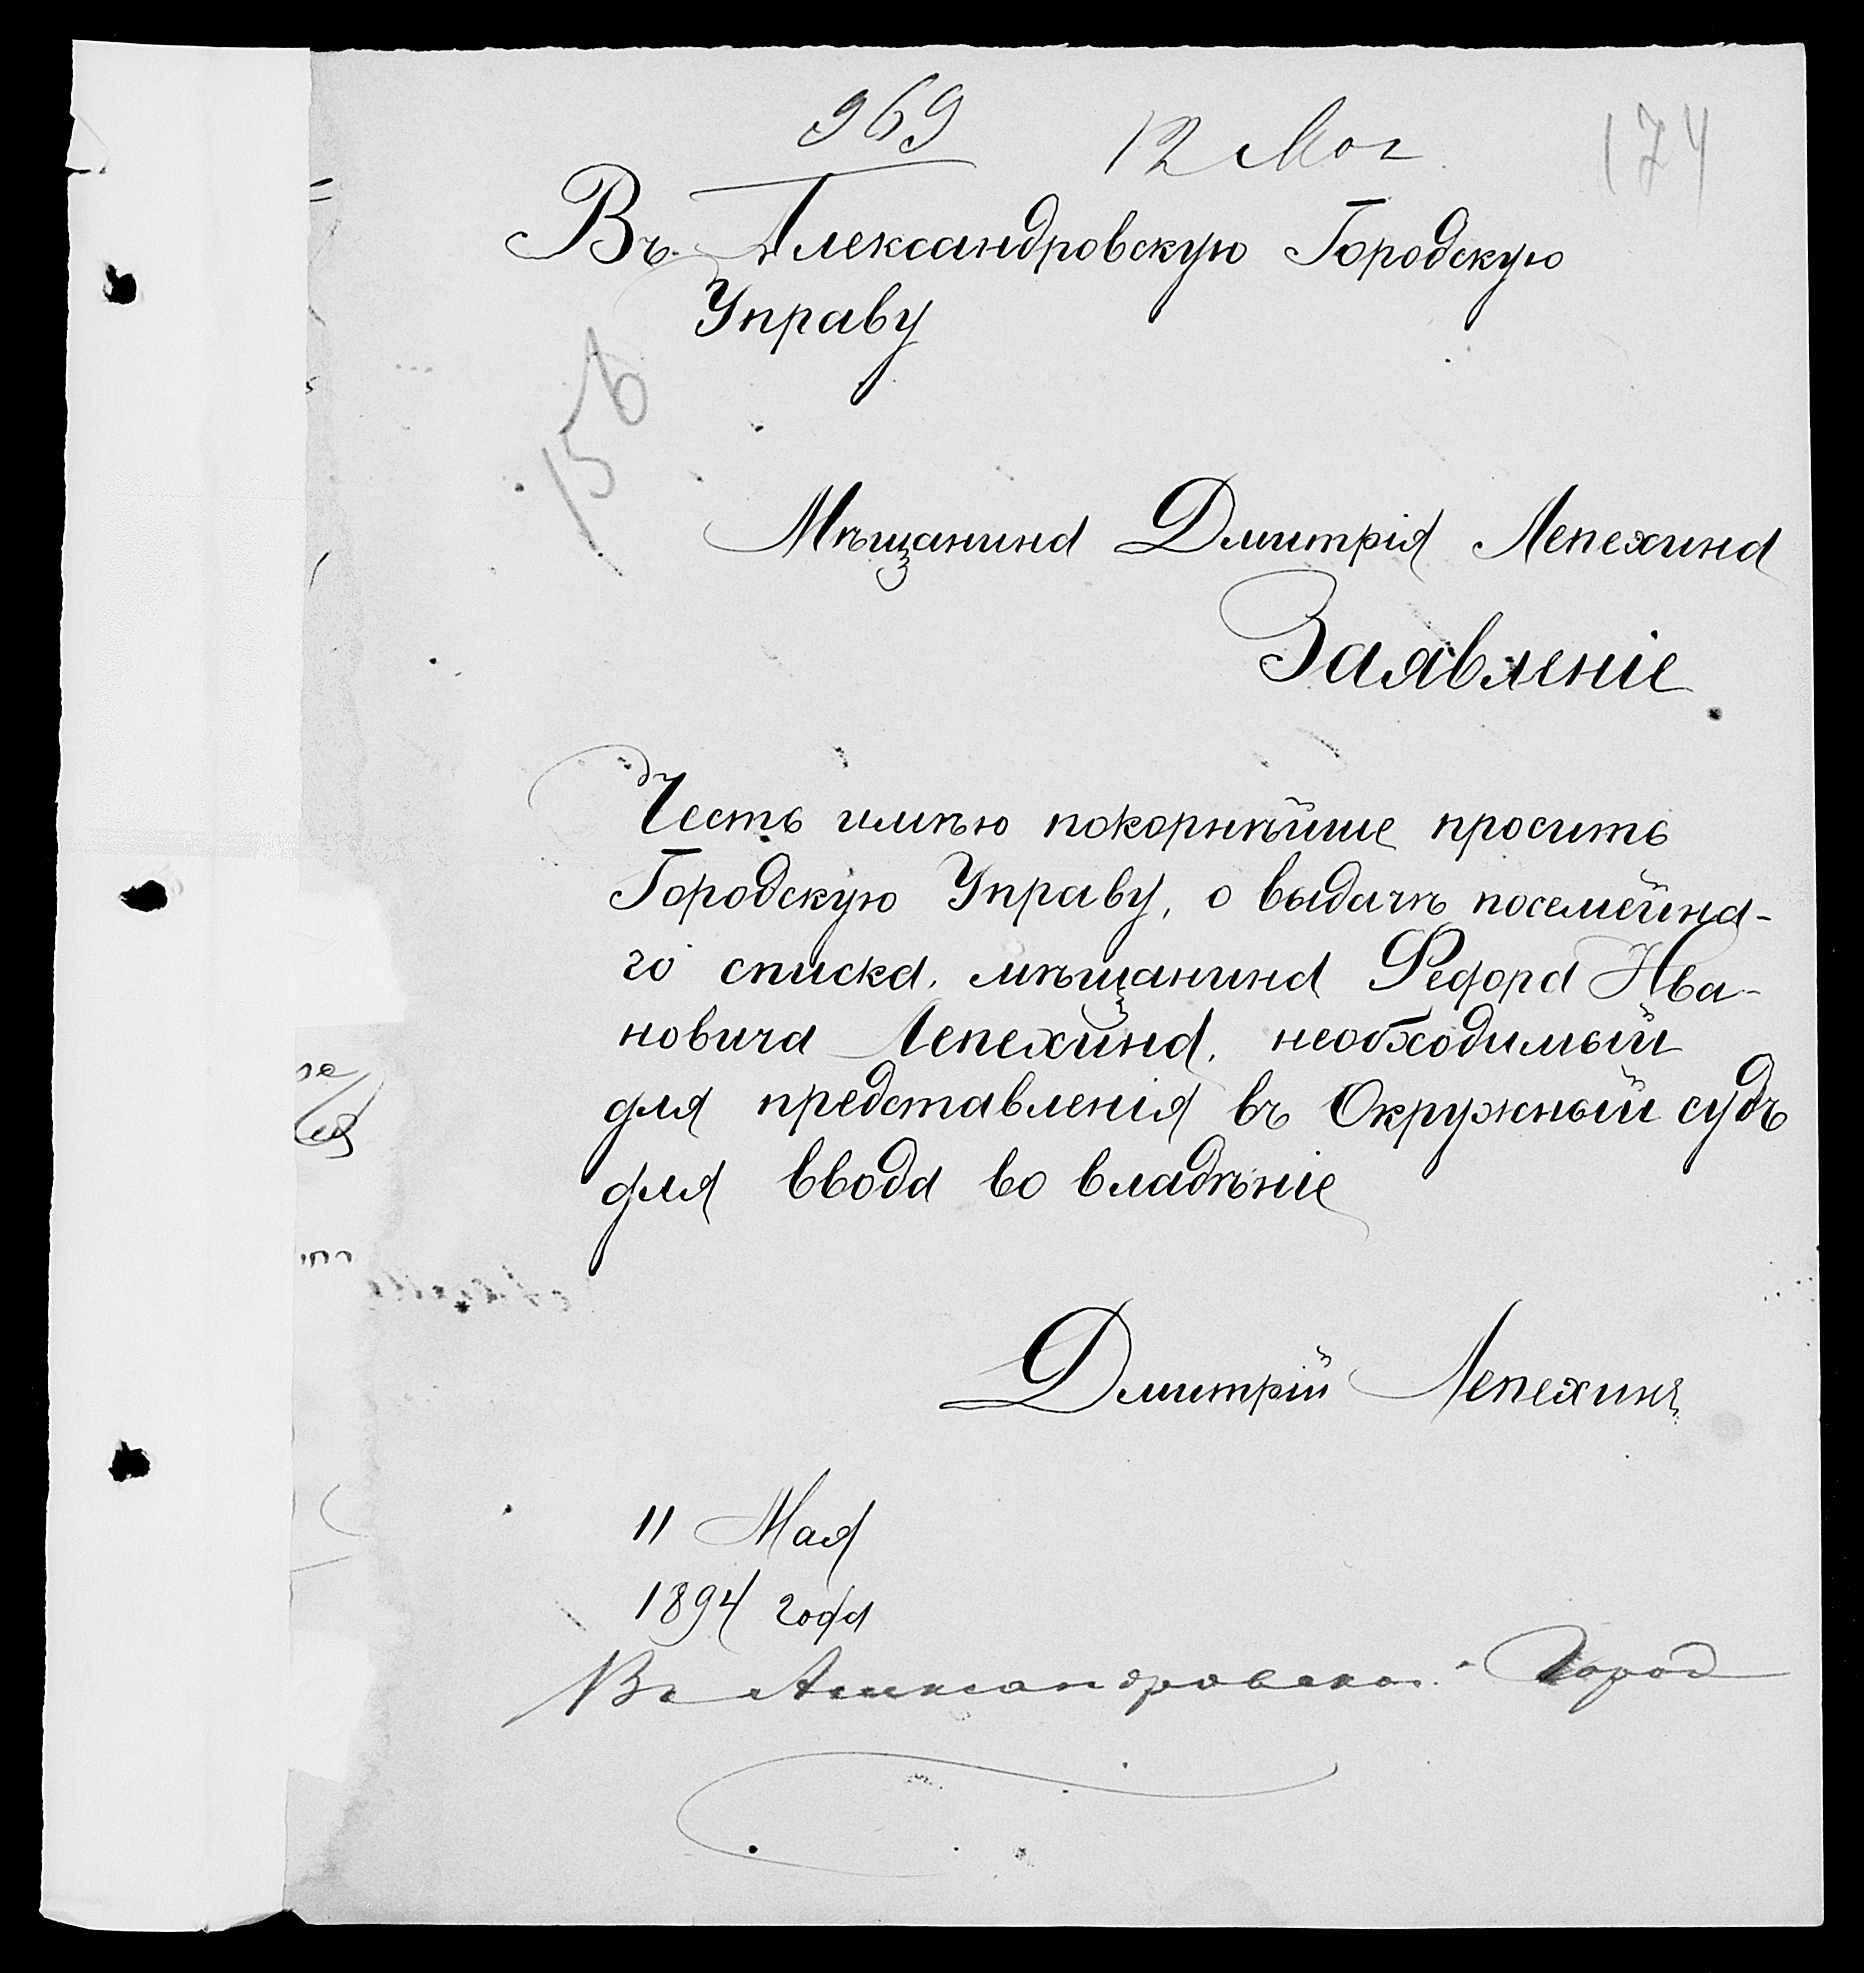 969
12 Мая
174
Въ Александровскую Городскую
Управу
156
Мѣщанина Дмитрія Лепехина
Заявленіе
Честь имѣю покорнѣйше просить
Городскую Управу, о выдачѣ посемейна-
го списка, мѣщанина Федора Ива-
новича Лепехина, необходимый
для представленія въ Окружный судъ
для ввода во владѣніе
Дмитрій Лепехинъ
11 Мая
1894 года
Въ Александровской Город